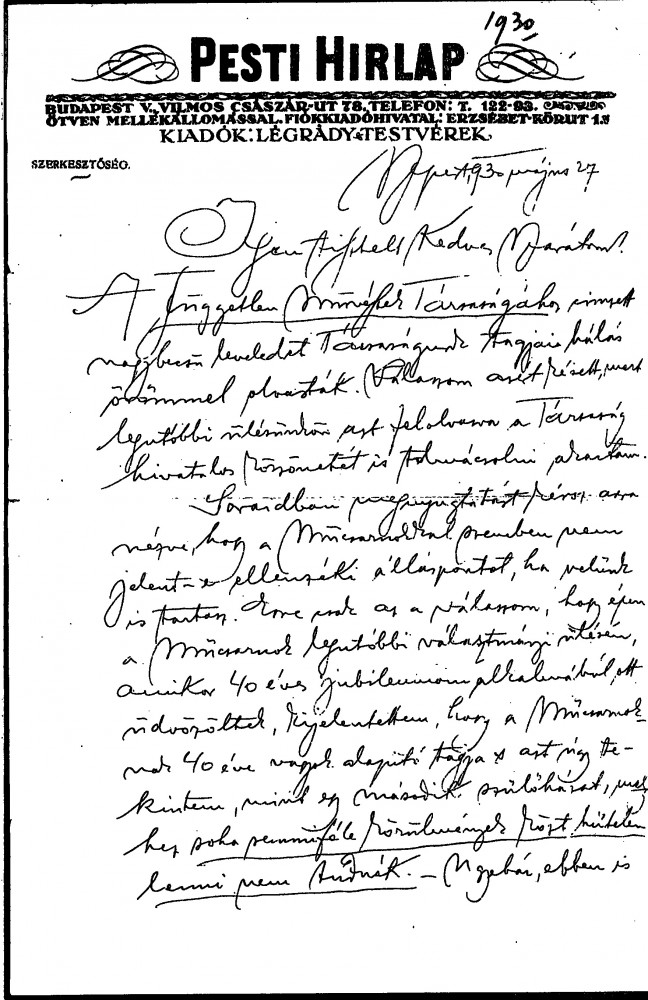 1930
PESTI HIRLAP
BUDAPEST V., VILMOS CSÁSZÁR-ÚT 78, TELEFON: T. 122-93.
ÖTVEN MELLÉKÁLLOMÁSSAL. FIÓKKIADÓHIVATAL: ERZSÉBET-KÖRUT 1.S
KIADÓK: LÉGRÁDY TESTVÉREK
SZERKESZTŐSÉG.
Bpest, 930 május 27
Igen tisztelt Kedves Barátom!
A Független Művészek Társaságához címzett
nagybecsű leveledet Társaságunk tagjai hálás
örömmel olvasták. Válaszom azért késett, mert
legutóbbi ülésünkön azt felolvasva a Társaság
hivatalos köszönetét is tolmácsolni akartam.
Soraidban megnyugtatást kérsz arra
nézve, hogy a Műcsarnokkal szemben nem
jelent-e ellenzéki álláspontot, ha velünk
is tartasz. Erre csak az a válaszom, hogy épen
a Műcsarnok legutóbbi választmányi ülésén,
amikor 40 éves jubileumom alkalmából, ott
üdvözöltek, kijelentettem, hogy a Műcsarnok-
nak 40 éve vagyok alapító tagja s azt úgy te-
kintem, mint egy második szülőházat, mely
hez soha semmiféle körülmények közt hűtelen
lenni nem tudnék. – Ugyebár, ebben is